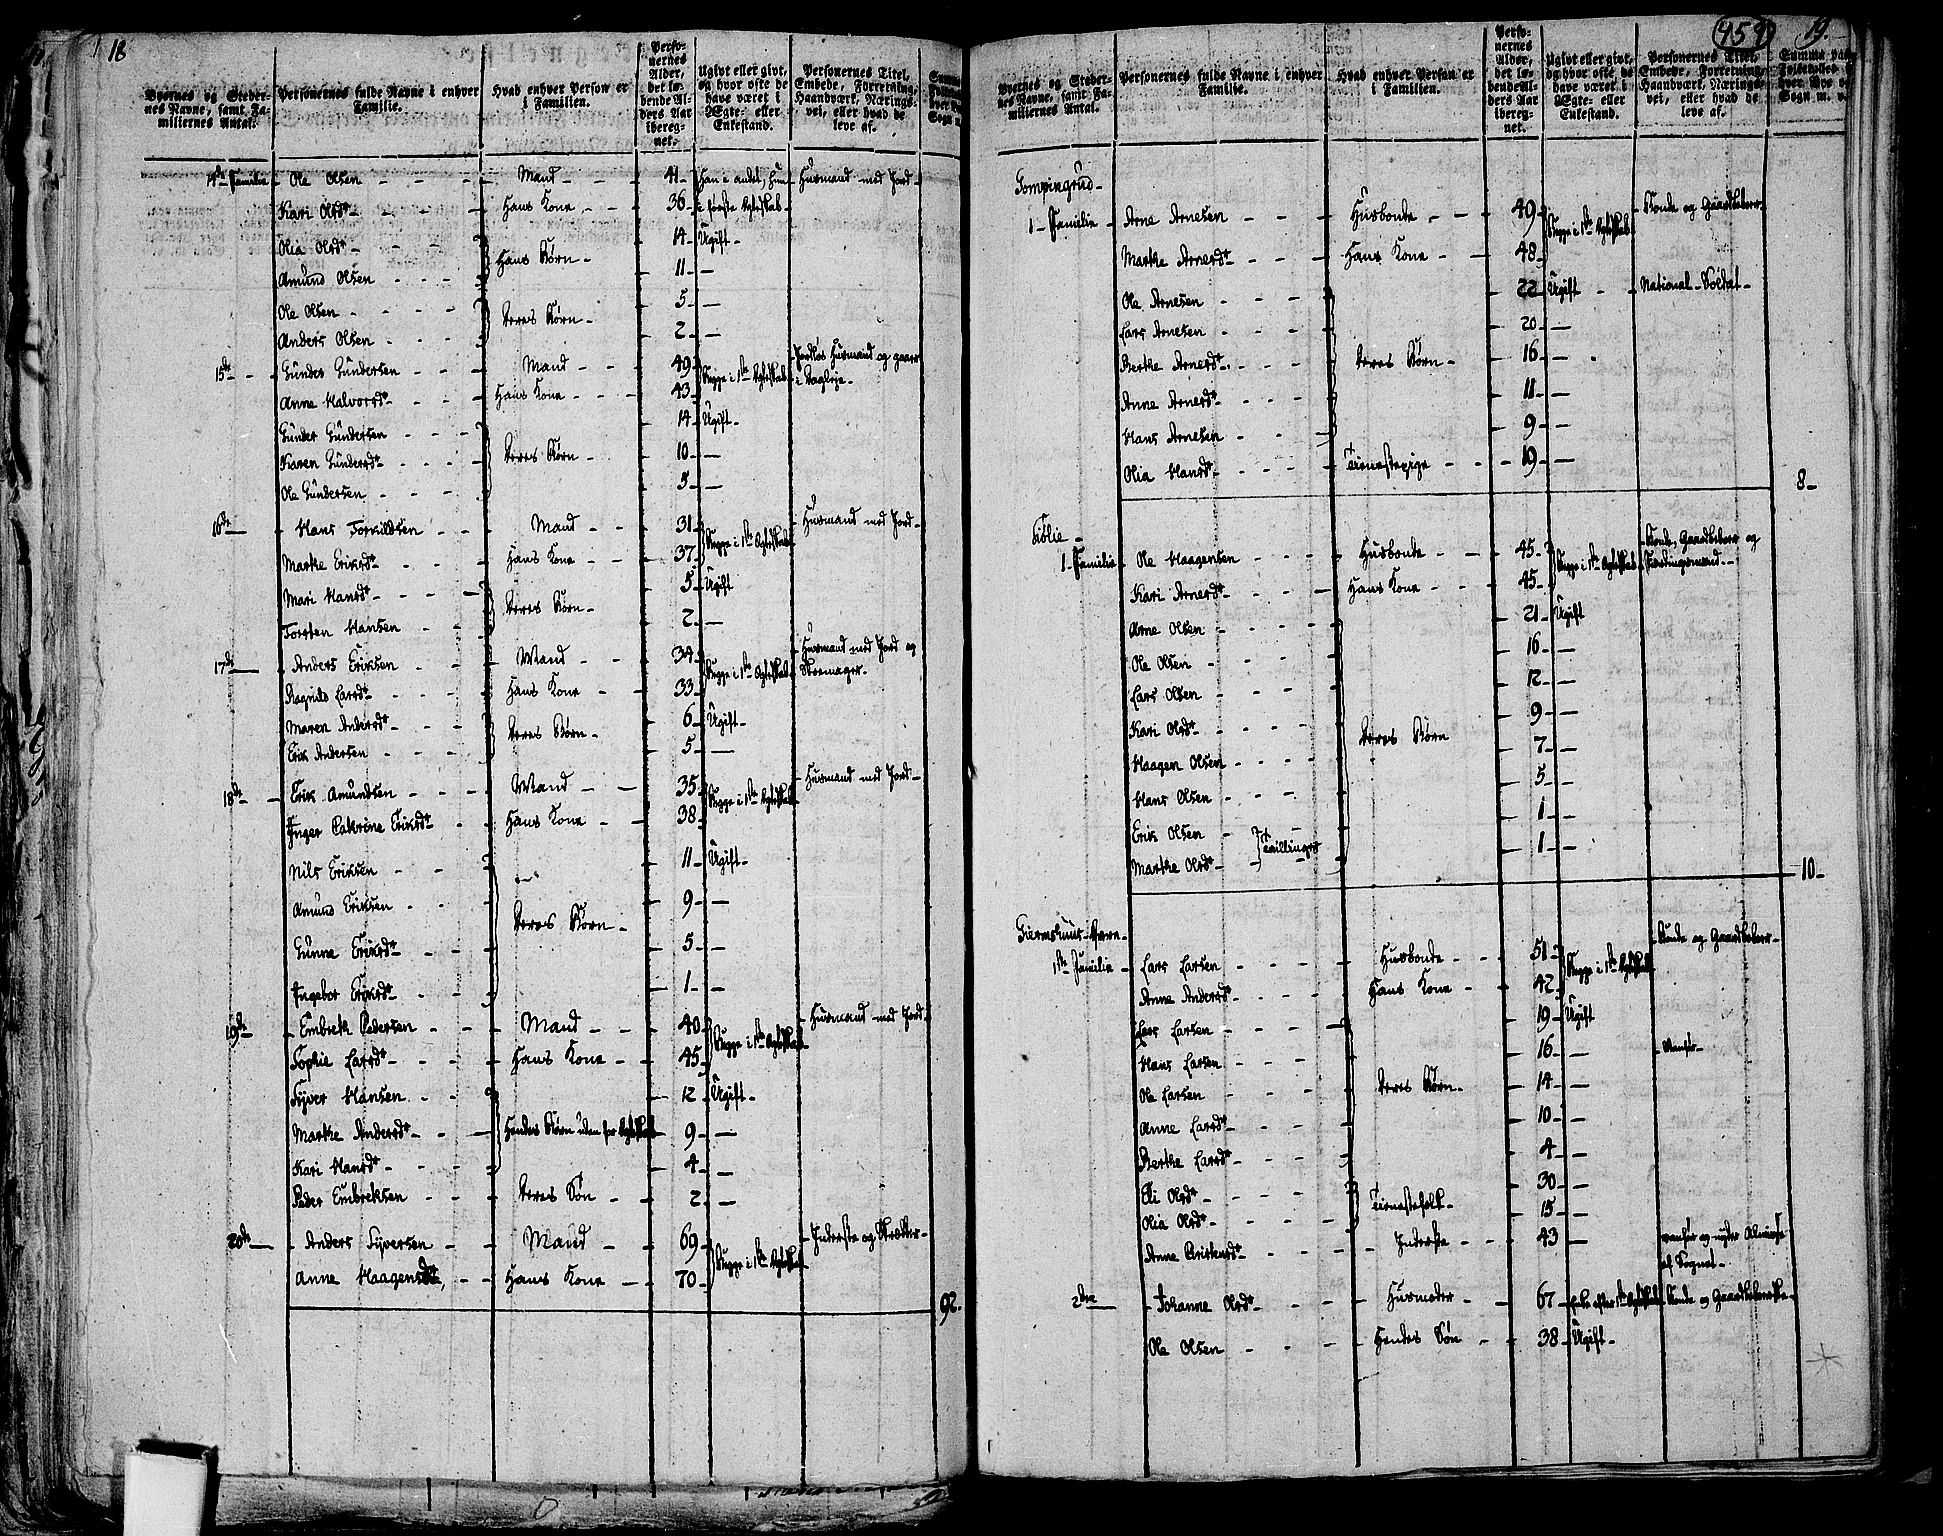 18
Byernes og Stedernes Navne, samt Familiernes Antal.
Personernes fulde Navne i enhver Familie.
Hvad enhver Person er i Familien.
Personernes Alder, det løbende Alders Aar iberegnet.
Ugivt eller givt, og hvor ofte de have været i Ægte- eller Enkestand.
Personernes Titel, Embede, Forretning, Haandværk, Næringsvei, eller hvad de leve af.
14de Familie - Ole Olsen - Mand - 41 - Han i andet, hun - Huusmand med Jord -
Kari Olsdr - Hans Kone - 36 - i første Egteskab -
Olia Olsdr - 14 - Ugift -
Hans Børn -
Amund Olsen - 11 - —
Ole Olsen - 5 - —
Deres Børn -
Anders Olsen - 2 - —
15de - Gunder Gundersen - Mand - 49 - Begge i 1ste Egteskab - Jordløs Huusmand og gaaer i Dagleje -
Anne Halvorsdr - Hans Kone - 43 -
Gunder Gundersen - 14 - Ugift -
Karen Gundersdr - Deres Børn - 10 - —
Ole Gundersen - 5 - —
16de - Hans Torkildsen - Mand - 31 - Begge i 1ste Egteskab - Huusmand med Jord -
Marthe Eriksdr - Hans Kone - 37 -
Mari Hansdr - Deres Børn - 5 - Ugift
Torsten Hansen - 2 - —
17de - Anders Eriksen - Mand - 34 - Begge i 1ste Egteskab - Huusmand med Jord og Skoemager -
Ragnild Larsdr - Hans Kone - 33 -
Maren Andersdr - Deres Børn - 6 - Ugift -
Erik Andersen - 5 - —
18de - Erik Amundsen - Mand - 35 - Begge i 1ste Egteskab - Huusmand med Jord -
Inger Cathrine Eriksdr - Hans Kone - 38 -
Nils Eriksen - 11 - Ugift -
Amund Eriksen - 9 - —
Deres Børn -
Gunne Eriksdr - 5 - —
Ingebor Eriksdr - 1 - —
19de - Embrek Pedersen - Mand - 40 - Begge i 1ste Egteskab - Huusmand med Jord -
Sophie Larsdr - Hans Kone - 45 -
Syver Hansen - 12 - Ugift -
Marthe Andersdr - Hendes Børn uden for Egteskab - 9 - —
Kari Hansdr - 4 - —
Peder Embreksen - Deres Søn - 2 - —
20de - Anders Syversen - Mand - 69 - Begge i 1ste Egteskab - Inderste og Skrædder -
Anne Haagensdr - Hans Kone - 70 -
92.
459 19.
Byernes og Stedernes Navne, samt Familiernes Antal.
Personernes fulde Navne i enhver Familie.
Hvad enhver Person er i Familien.
Personernes Alder, det løbende Alders Aar iberegnet.
Ugivt eller givt, og hvor ofte de have været i Ægte- eller Enkestand.
Personernes Titel, Embede, Forretning, Haandværk, Næringsvei, eller hvad de leve af.
Gompingrud -
1 - Familie - Arne Arnesen - Husbonde - 49 - Begge i 1ste Egteskab - Bonde og Gaardbeboer -
Marthe Arnesdr - Hans Kone - 48 -
Ole Arnesen - 22 - Ugift - National-Soldat -
Lars Arnesen - 20 - —
Berthe Arnesdr - Deres Børn - 16 - —
Anne Arnesdr - 11 - —
Hans Arnesen - 9 - —
Olia Hansdr - Tienestepige - 19 - —
8 -
1 - Familie - Ole Haagensen - Husbonde - 45 - Begge i 1ste Egteskab - Bonde, Gaardbeboer og
Kari Arnesdr - Hans Kone - 45 -
Arne Olsen - 21 - Ugift
Ole Olsen - 16 - —
Lars Olsen - 12 - —
Kari Olsdr - 9 - —
Deres Børn
Haagen Olsen - 7 - —
Hans Olsen - 5 - —
Erik Olsen - 1 - —
Tvillinger
Marthe Olsdr - 1 - —
10 -
1ste Familie - Lars Larsen - Husbonde - 51 - Begge i 1ste Egteskab - Bonde og Gaardbeboer -
Anne Andersdr - Hans Kone - 42 -
Lars Larsen - 19 - Ugift
Hans Larsen - 16 - — - Vanfør -
Ole Larsen - Deres Børn - 14 - —
Anne Larsdr - 10 - —
Berthe Larsdr - 4 - —
Eli Olsdr - 30 - —
Tienestefolk -
Olia Olsdr - 15 - —
Anne Christensdr - Inderste - 43 - — - vanfør og nyder Almisse af Sognet -
2den - Johanne Olsdr - Husmoder - 67 - Enke efter 1ste Egteskab - Bonde og Gaardbeboerske -
Ole Olsen - Hendes Søn - 38 - Ugift -